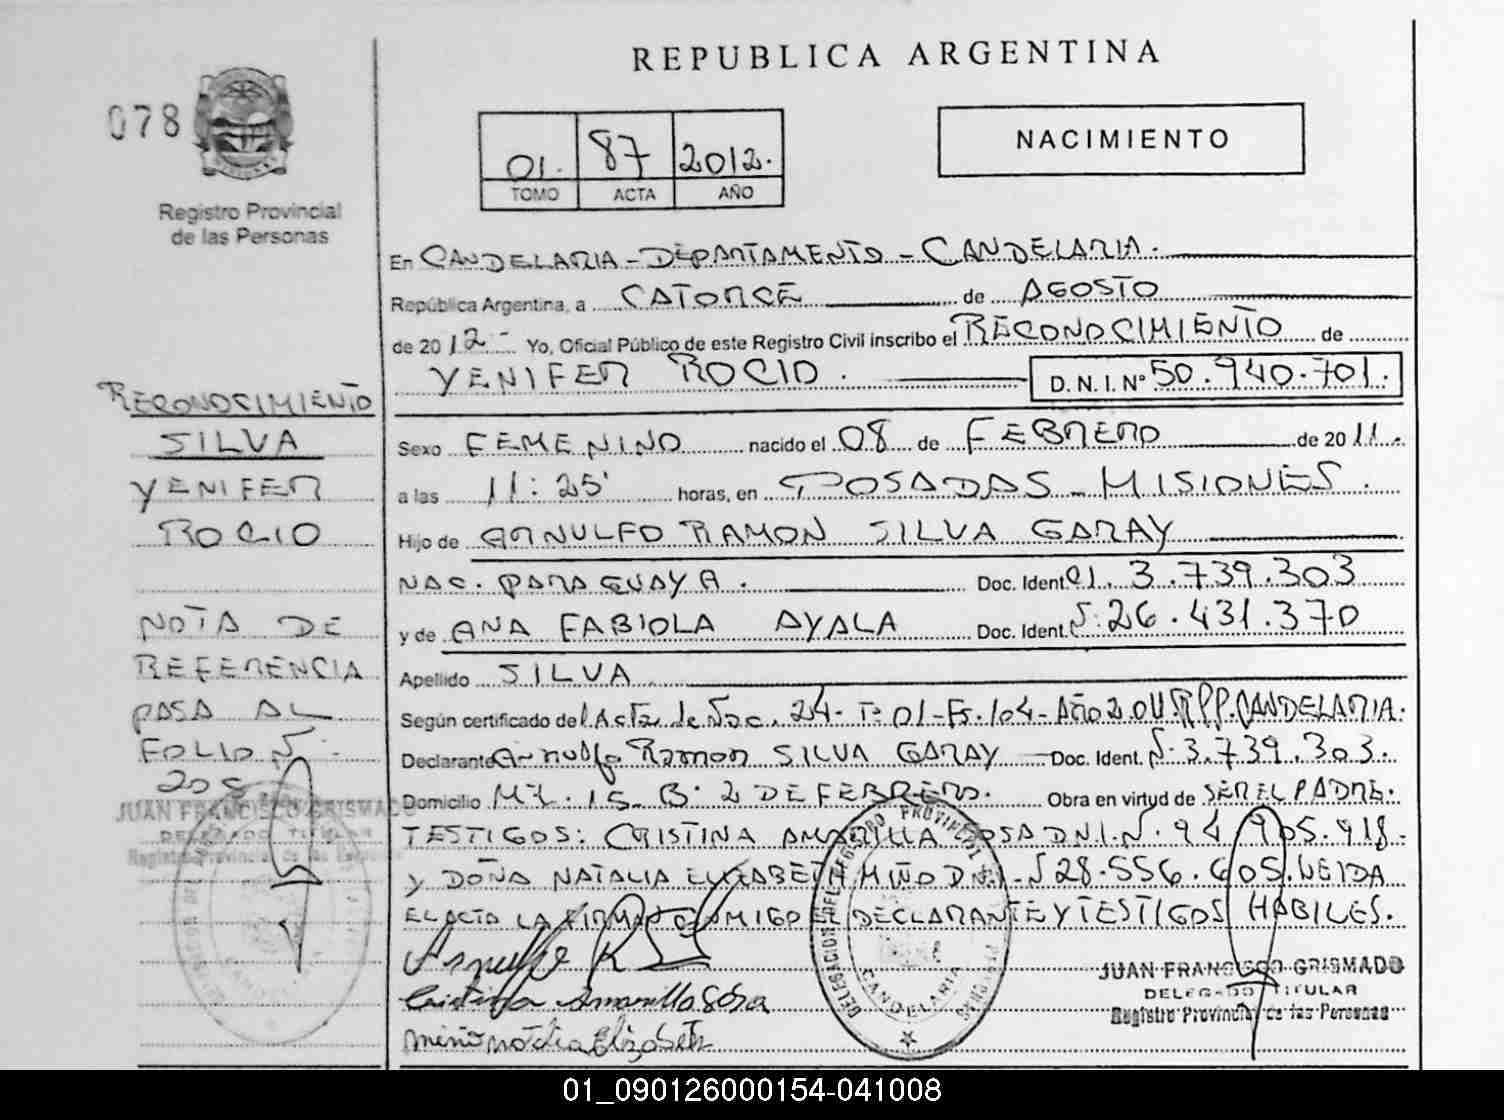 REPUBLICA ARGENTINA
078
01. 87 2012.
TOMO ACTA AÑO
NACIMIENTO
Registro Provincial
de las Personas
En CANDELARIA - DEPARTAMENTO - CANDELARIA.
República Argentina, a CATORCE de AGOSTO
de 2012- Yo, Oficial Público de este Registro Civil inscribo el RECONOCIMIENTO de
YENIFER ROCIO. D.N.I. Nº 50.940.701.
RECONOCIMIENTO
SILVA
YENIFER
ROCIO
NOTA DE
REFERENCIA
PASA AL
FOLIO Nº
208
JUAN FRANCISCO GRISMADO
DELEGADO TITULAR
Registro Provincial de las Personas
Sexo FEMENINO nacido el 08 de FEBRERO de 2011.
a las 11:25' horas, en POSADAS - MISIONES.
Hijo de ARNULFO RAMON SILVA GARAY
NAC. PARAGUAYA. Doc. Ident. CI. 3.739.303
y de ANA FABIOLA AYALA Doc. Ident. Nº 26.431.370
Apellido SILVA
Según certificado del Acta de Nac. 24- Tº 01- Fº 104- Año 2011 RPP. CANDELARIA.
Declarante Arnulfo Ramon SILVA GARAY Doc. Ident. Nº 3.739.303.
Domicilio MZ. 15 - Bº 2 DE FEBRERO. Obra en virtud de SER EL PADRE.
TESTIGOS: CRISTINA AMARILLA SOSA D.N.I. Nº 94.905.918-
Y DOÑA NATALIA ELIZABETH MIÑO D.N.I. Nº 28.556.605. LEIDA
EL ACTA LA FIRMAN CONMIGO EL DECLARANTE Y TESTIGOS HABILES.
Arnulfo R
Cristina Amarilla Sosa
Miño Natalia Elizabeth
DELEGACION DEL REGISTRO PROVINCIAL DE LAS PERSONAS
CANDELARIA
JUAN FRANCISCO GRISMADO
DELEGADO TITULAR
Registro Provincial de las Personas
01_090126000154-041008